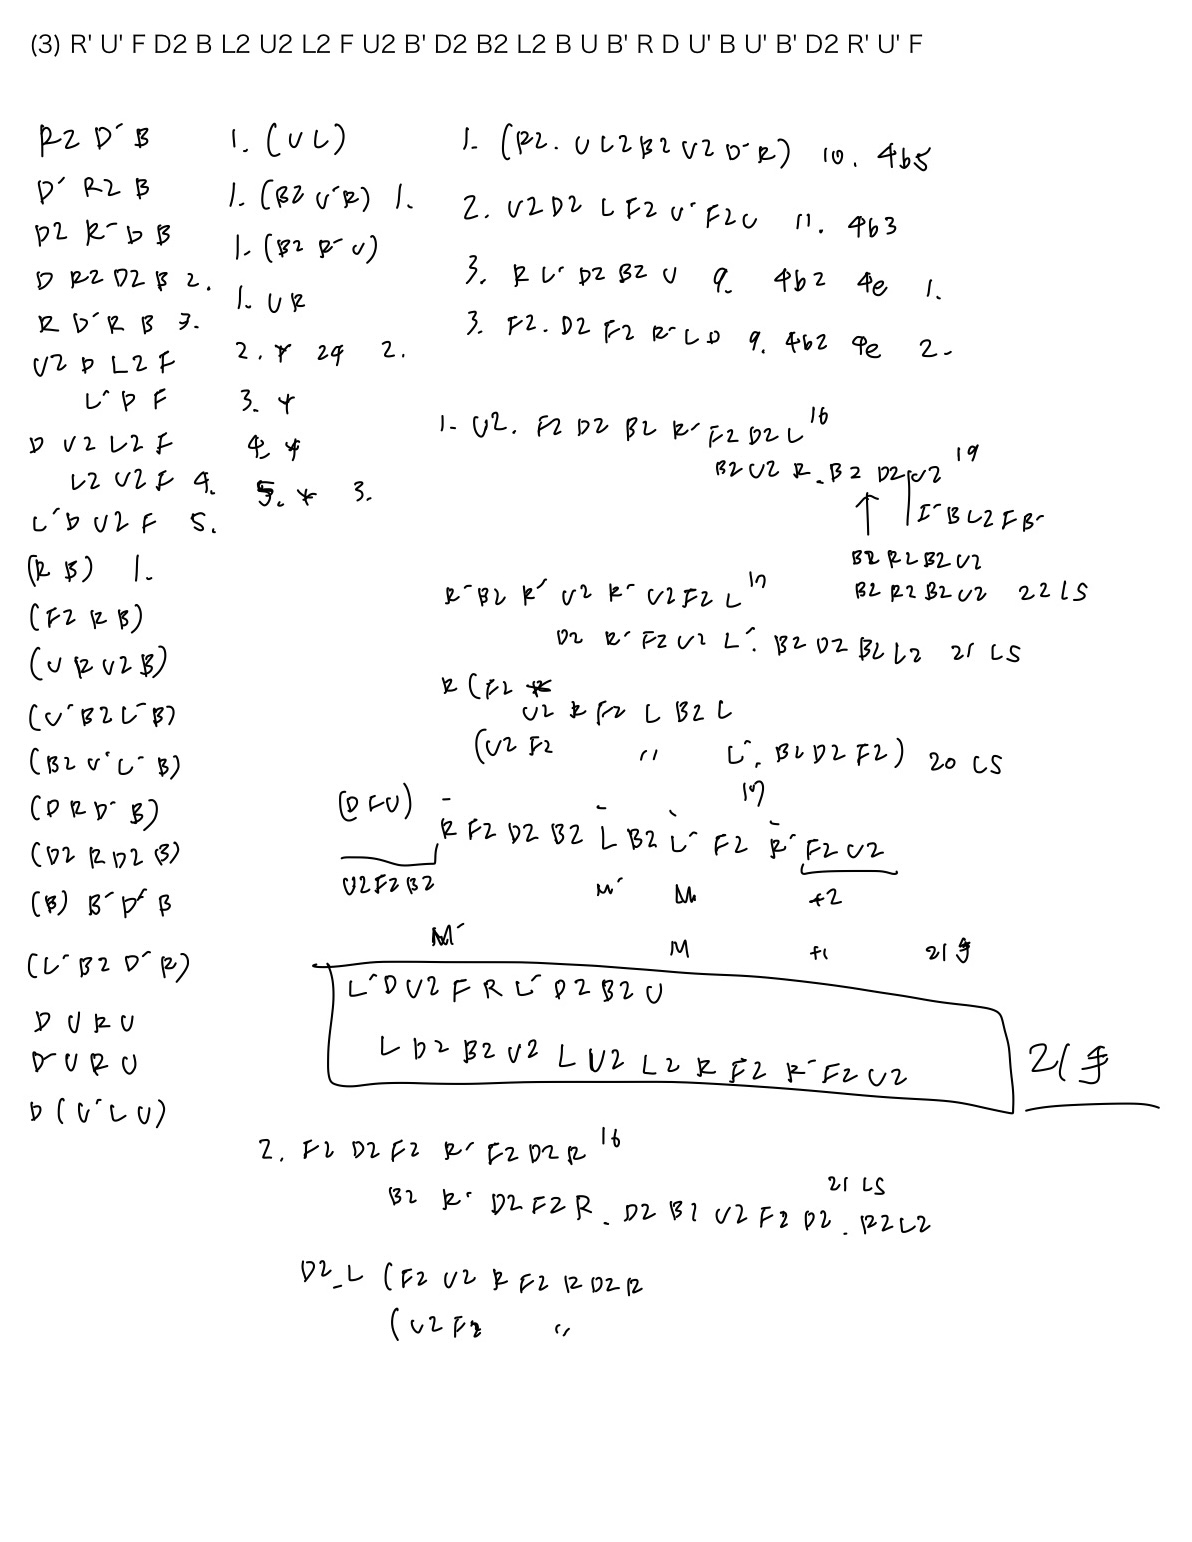 (3) R' U' F D2 B L2 U2 L2 F U2 B' D2 B2 L2 B U B' R D U' B U' B' D2 R' U' F
R2 D' B
D' R2 B
D2 R' D B
D R2 D2 B 2.
R D' R B 3.
U2 D L2 F
L' D F
D U2 L2 F
L2 U2 F 4.
L' D U2 F 5.
(R B) 1.
(F2 R B)
(U R U2 B)
(U' B2 L' B)
(B2 U' L' B)
(D R D' B)
(D2 R D2 B)
(B) B' D' B
(L' B2 D' R)
D U R U
D' U R U
D (U' L U)
1. (U L)
1. (B2 U' R) 1.
1. (B2 R' U)
1. U R
2. 2. 
3.
4.
5. 3.
1. (R2. U L2 B2 U2 D' R) 10. 4b5
2. U2 D2 L F2 U' F2 U 11. 4b3
3. R L' D2 B2 U 9. 4b2 4e 1.
3. F2. D2 F2 R' L D 9. 4b2 4e 2.
1. U2. F2 D2 B2 R' F2 D2 L 16
B2 U2 R . B2 D2 U2 19
B L2 F B'
B2 R2 B2 U2
B2 R2 B2 U2 22 LS
R' B2 R' U2 R' U2 F2 L 17
D2 R' F2 U2 L'. B2 D2 B2 L2 21 LS
R (F2
U2 R F2 L B2 L
(U2 F2 〃 L'. B2 D2 F2) 20 LS
(D F U)
R F2 D2 B2 L B2 L' F2 R' F2 U2 17
U2 F2 B2 M' M +2
M' M +1 21手
L' D U2 F R L' D2 B2 U
L D2 B2 U2 L U2 L2 R F2 R' F2 U2
21手
2. F2 D2 F2 R' F2 D2 R 16
B2 R' D2 F2 R . D2 B2 U2 F2 D2 . R2 L2 21 LS
D2 L (F2 U2 R F2 R D2 R
(U2 F2 〃